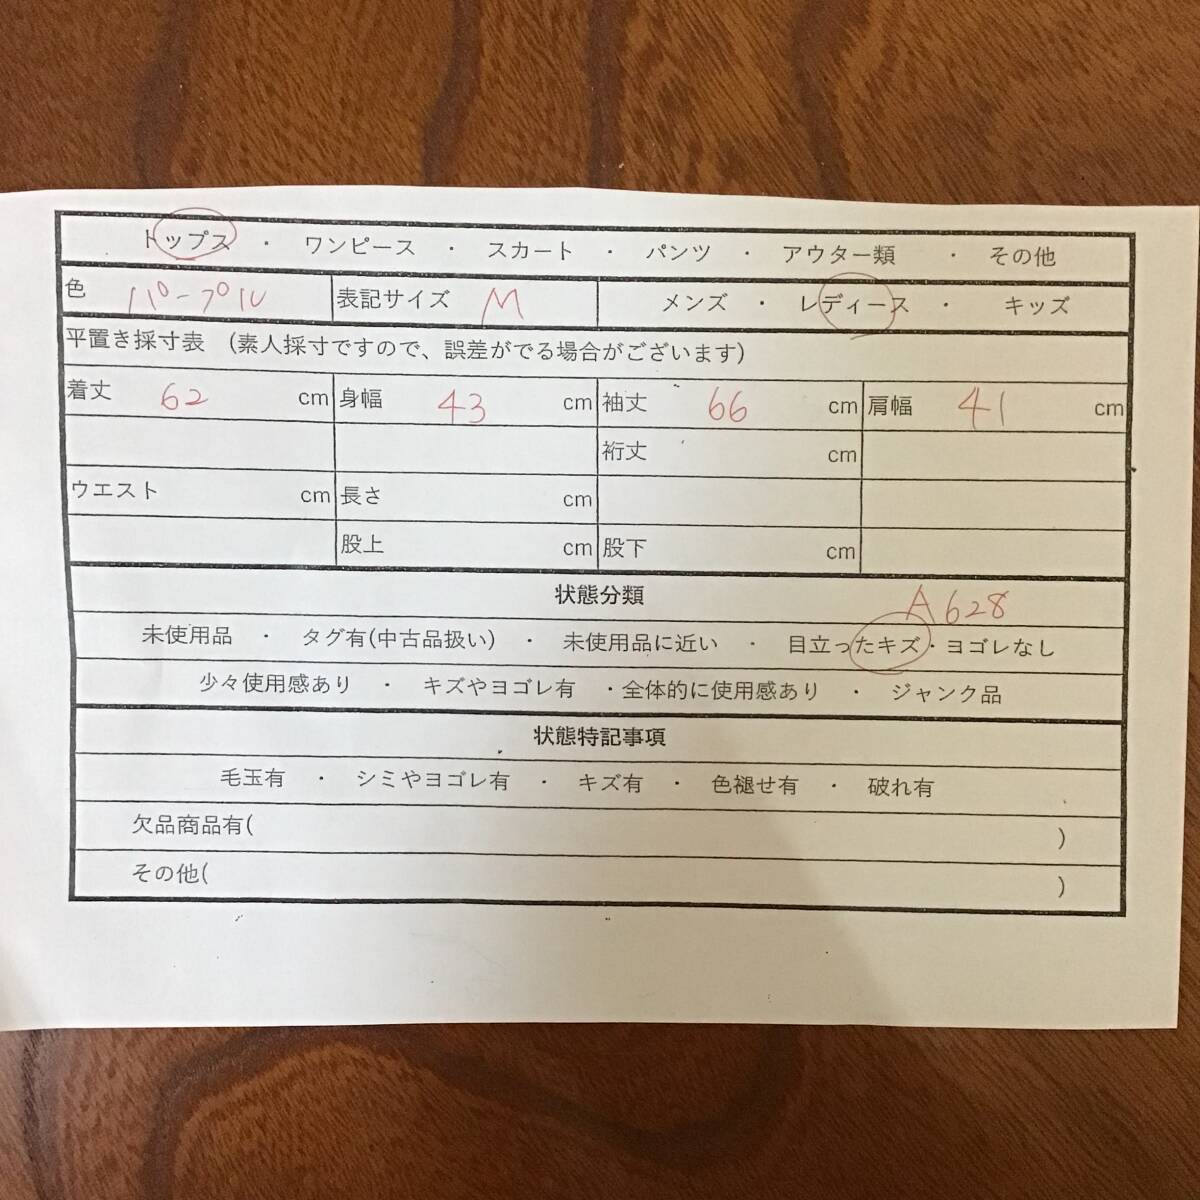 トップス ・ ワンピース ・ スカート ・ パンツ ・ アウター類 ・ その他
色 パープル 表記サイズ M メンズ ・ レディース ・ キッズ
平置き採寸表 (素人採寸ですので、誤差がでる場合がございます)
着丈 62 cm 身幅 43 cm 袖丈 66 cm 肩幅 41 cm
裄丈 cm
ウエスト cm 長さ cm
股上 cm 股下 cm
状態分類 A628
未使用品 ・ タグ有(中古品扱い) ・ 未使用品に近い ・ 目立ったキズ・ヨゴレなし
少々使用感あり ・ キズやヨゴレ有 ・全体的に使用感あり ・ ジャンク品
状態特記事項
毛玉有 ・ シミやヨゴレ有 ・ キズ有 ・ 色褪せ有 ・ 破れ有
欠品商品有( )
その他( )